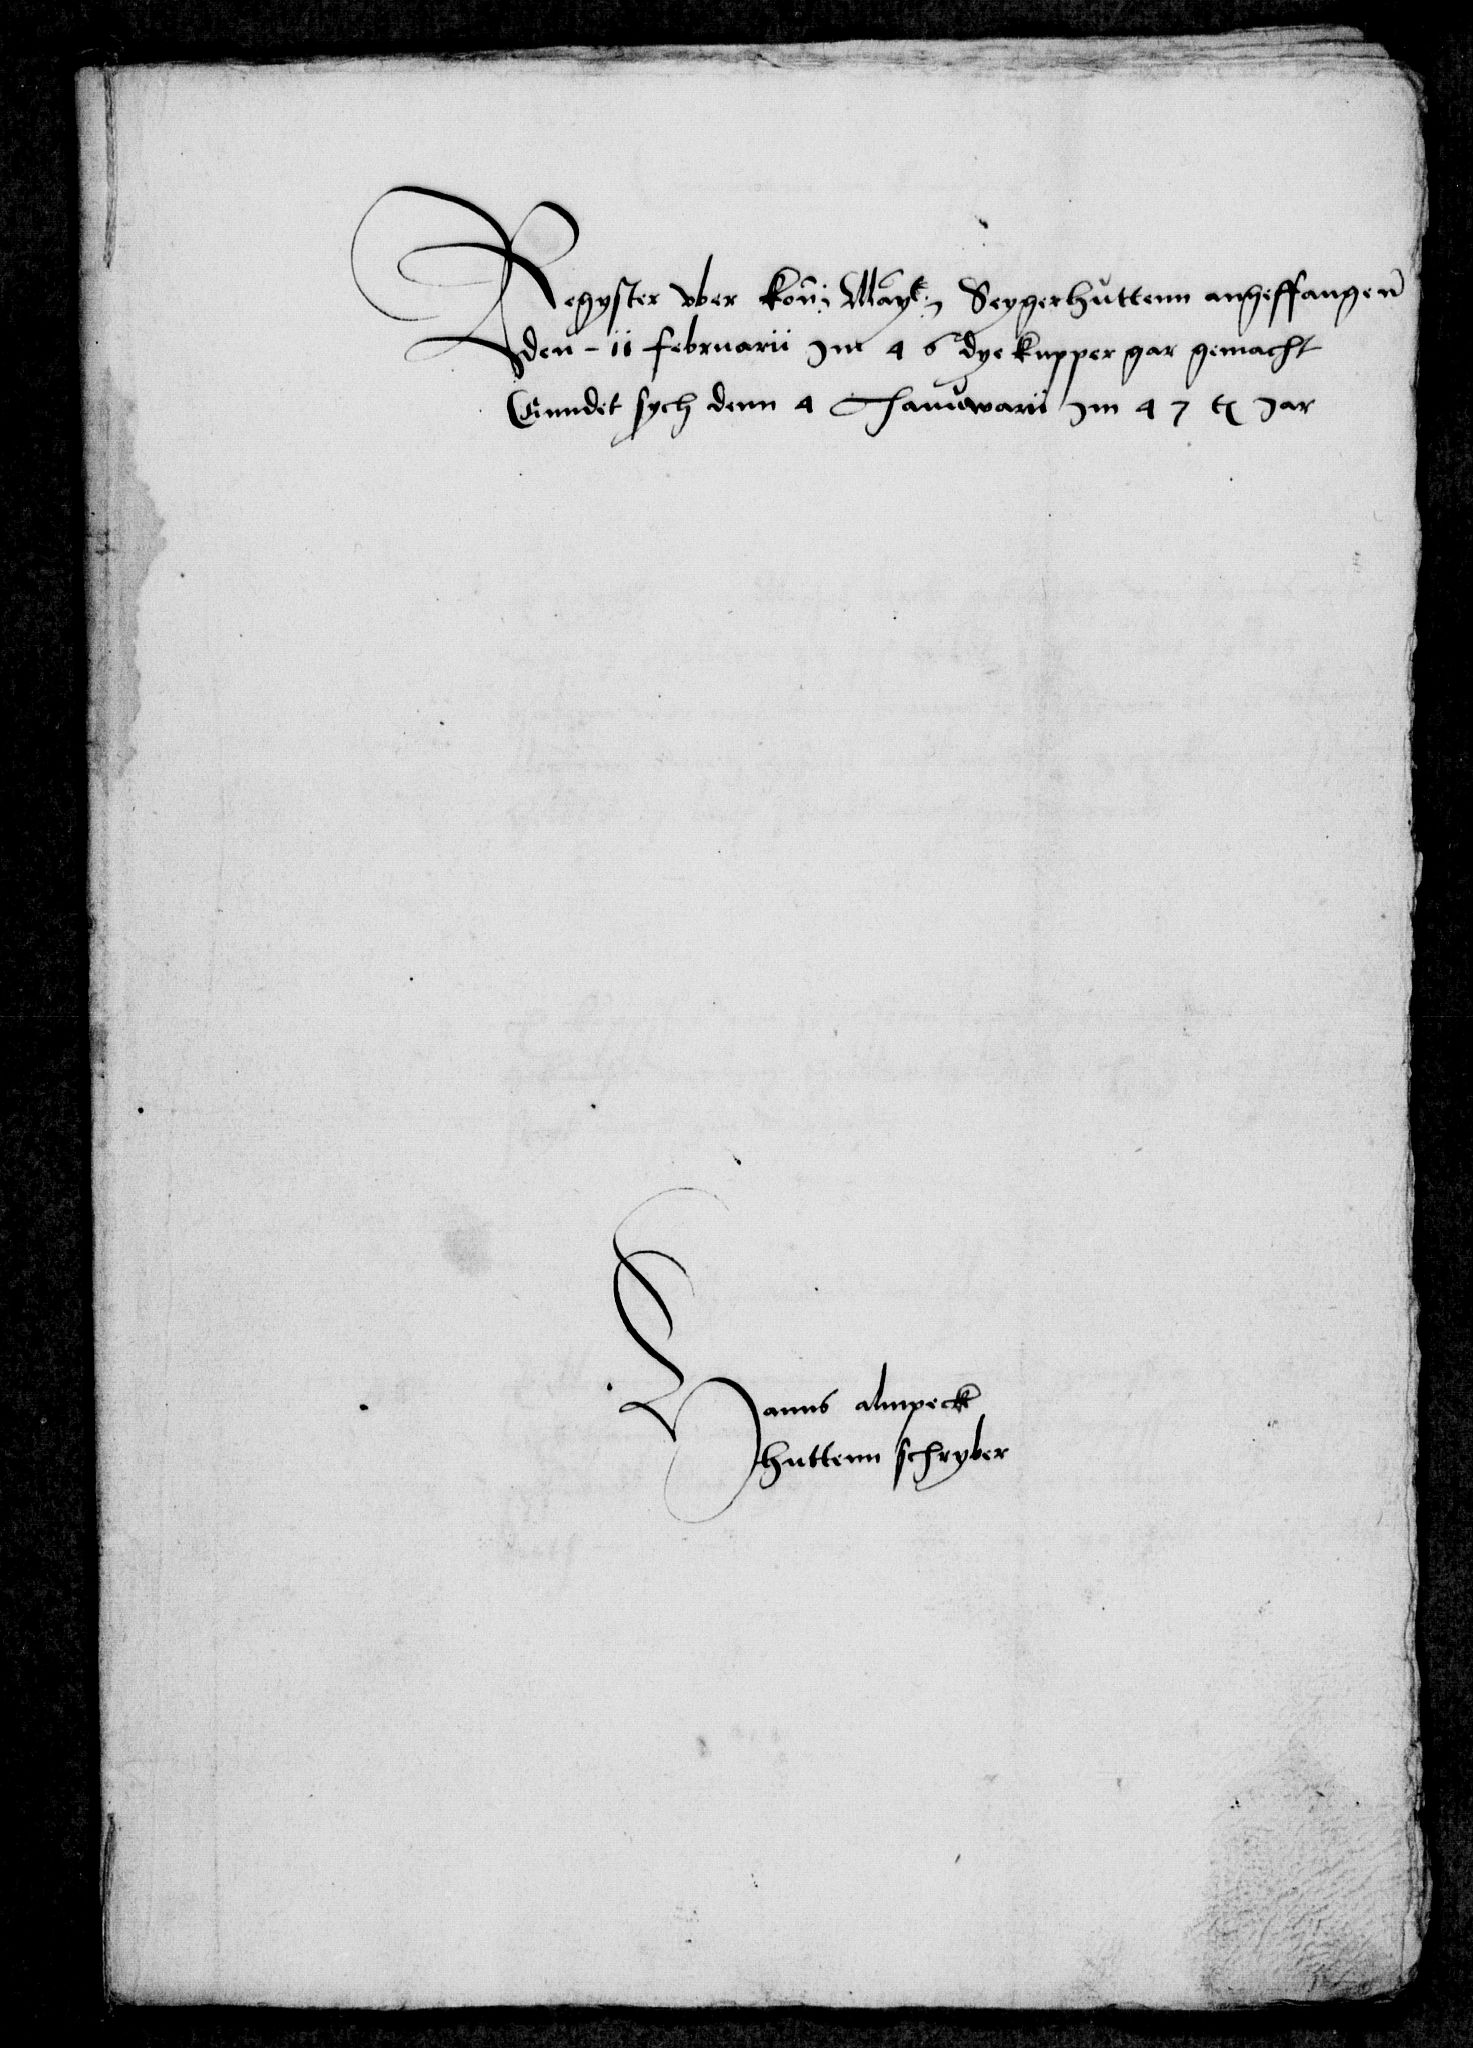 Regyster vber Kon: May: Seygerhuttenn angheffangen
den - 11 februarii Jm 4 6 dye kupper gar gemacht
Enndet sych denn 4 Januwarii Jm 4 7 t Jar
Hanns alnpeck
huttenn schryber